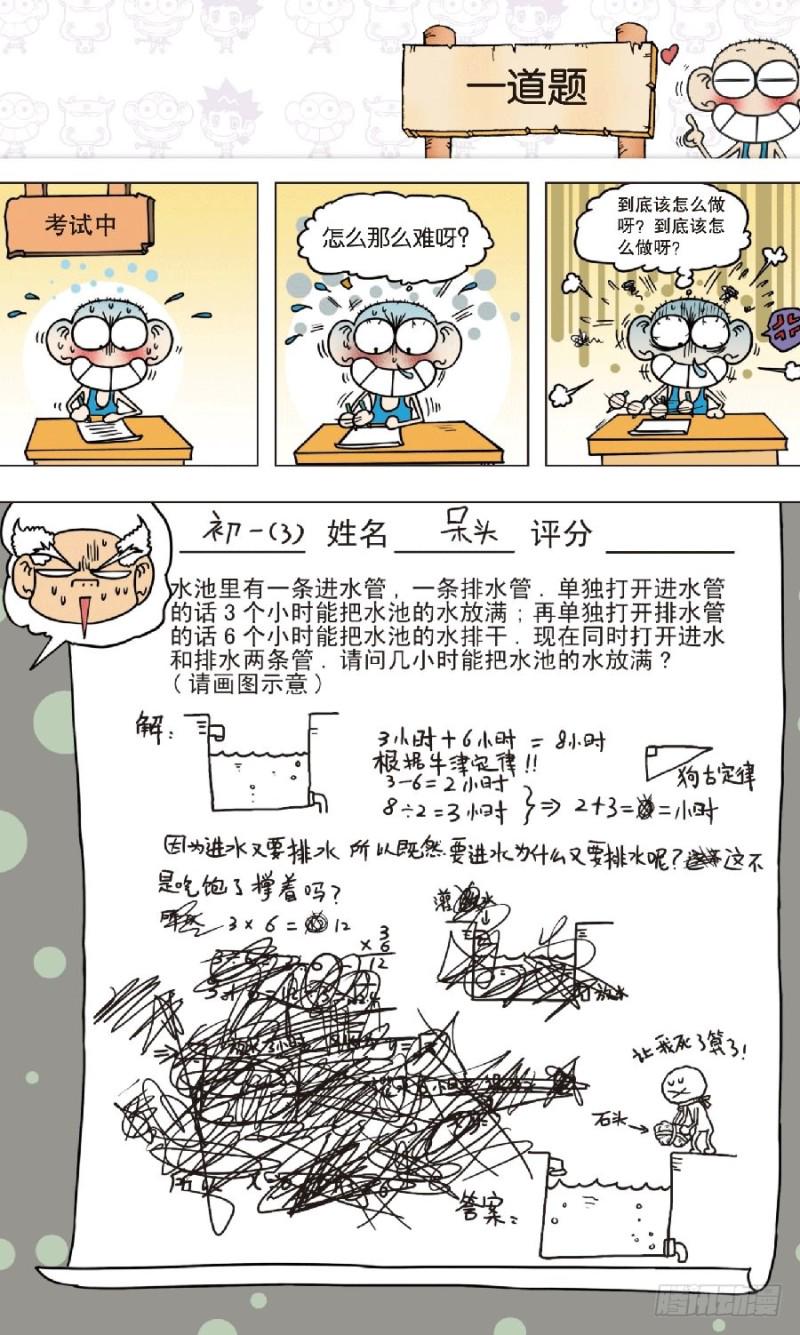 一道题
考试中
怎么那么难呀？
到底该怎么做
呀？到底该怎
么做呀？
初一(3) 姓名 呆头 评分
水池里有一条进水管，一条排水管．单独打开进水管
的话3个小时能把水池的水放满；再单独打开排水管
的话6个小时能把水池的水排干．现在同时打开进水
和排水两条管．请问几小时能把水池的水放满？
（请画图示意）
解：
3小时＋6小时＝8小时
根据牛津定律!!
3－6＝2小时
8÷2＝3小时
⇒ 2＋3＝＝小时
狗古定律
因为进水又要排水 所以既然要进水为什么又要排水呢？这不
是吃饱了撑着吗？
3×6＝12
3
×6
12
让我死了算了!
石头→
答案：
腾讯动漫